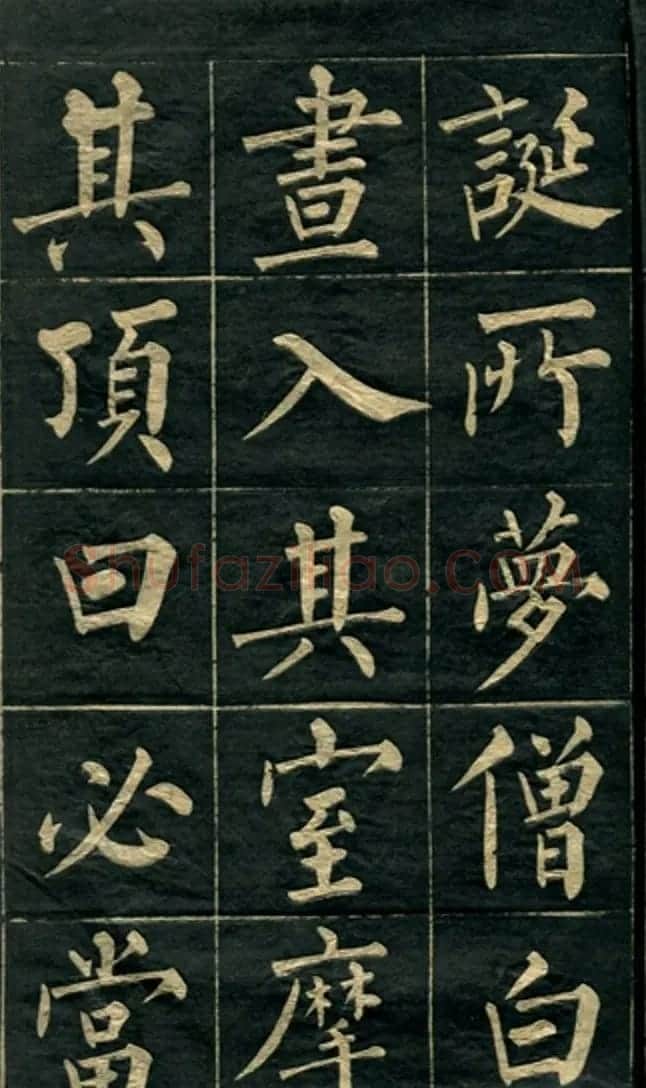 誕所夢僧白
晝入其室摩
其頂曰必當
Shufazihao.com